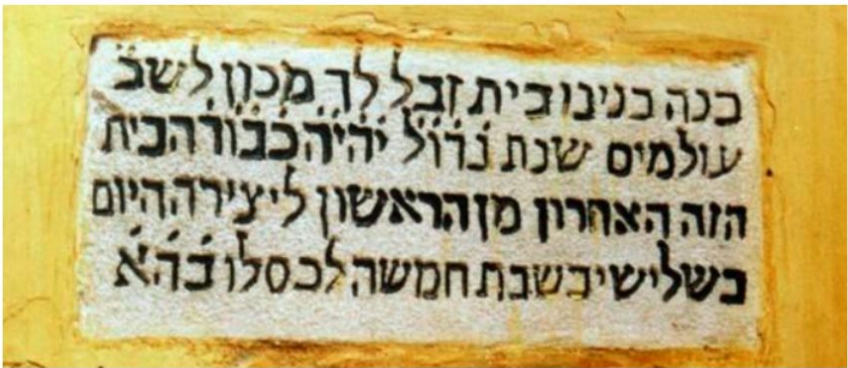 בנה בנינו בית זבל לך מכון לשב̇
עולמים שנת גדול יהיה כבוד הבית
הזה האחרון מן הראשון ליצירה היום
בשלישי בשבת חמשה לכסלו בהא